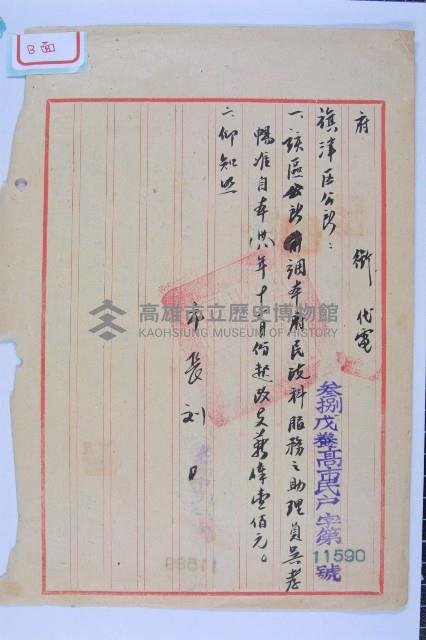 B面
府 銜 代電
旗津區公所：
一、該區公所調本府民政科服務之助理員吳孝
暢准自本(卅八)年十一月份起改支薪俸壹佰元。
二、仰知照
市長 刘
叁捌戊養高市民戶字第 11590 號
高雄市立歷史博物館
KAOHSIUNG MUSEUM OF HISTORY